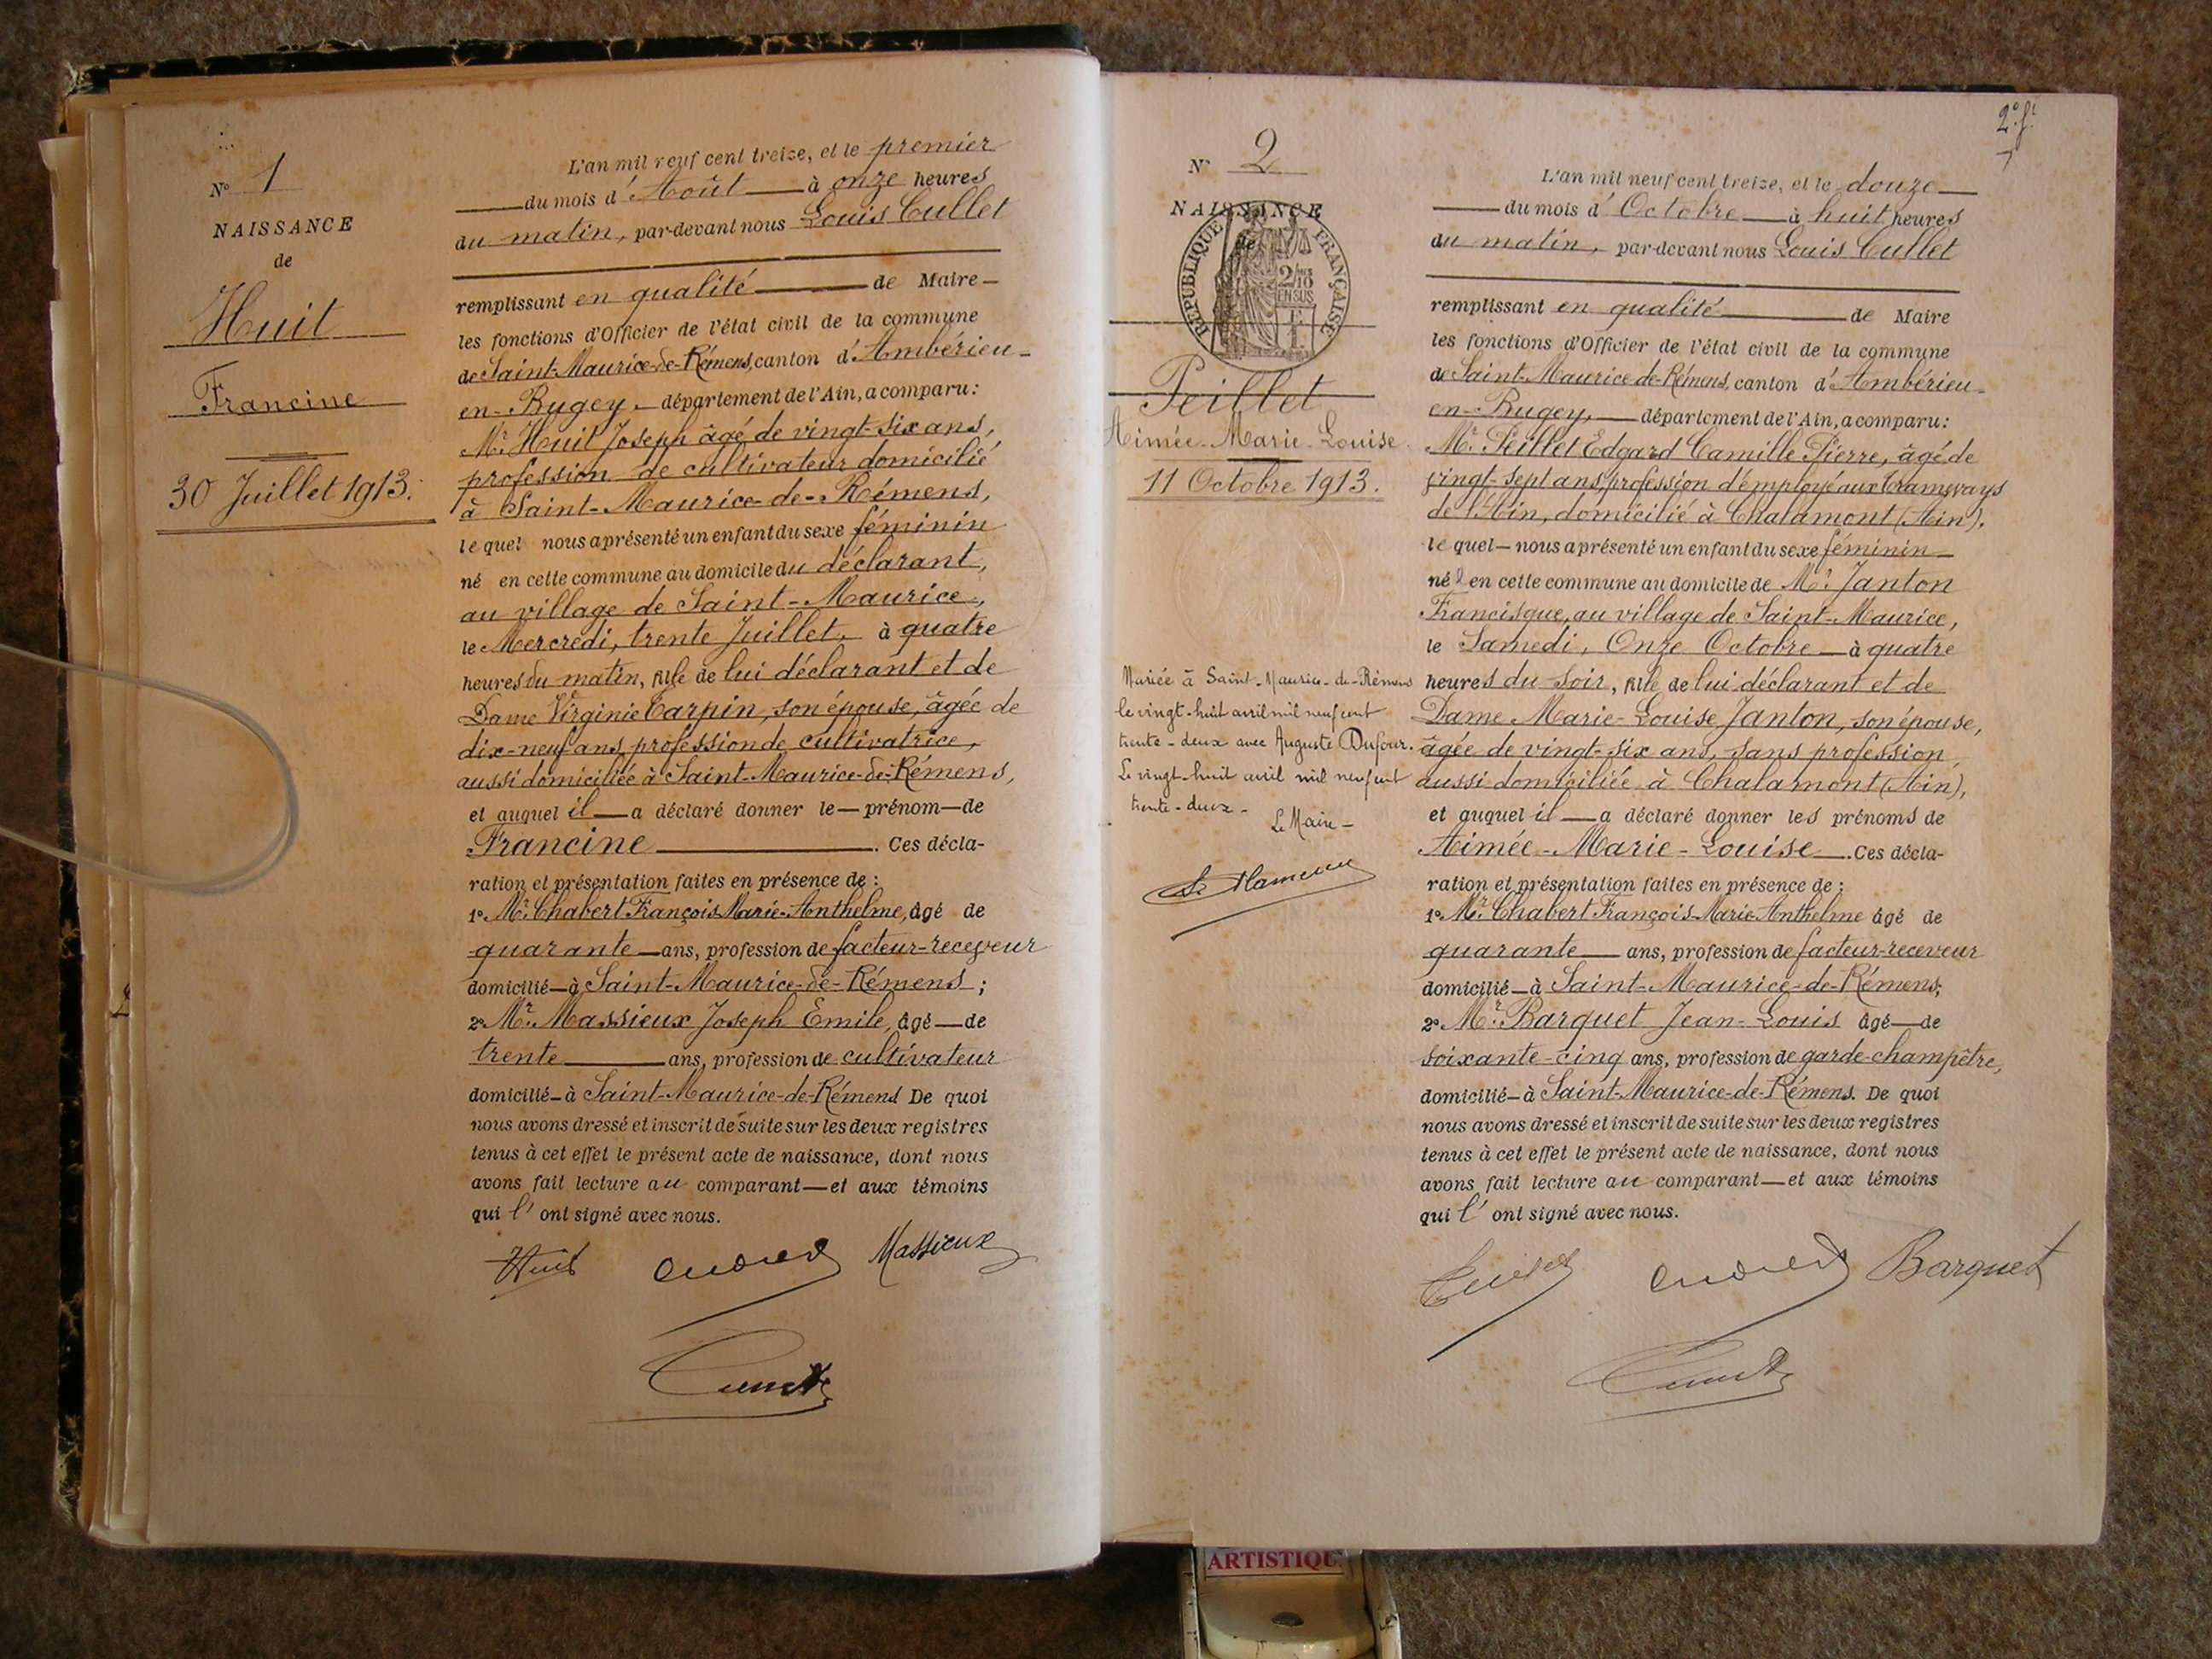 N° 1
NAISSANCE
de
Huit
Francine
30 Juillet 1913.
L'an mil neuf cent treize, et le premier
du mois d'Août à onze heures
du matin, par-devant nous Louis Cullet
remplissant en qualité de Maire
les fonctions d'Officier de l'état civil de la commune
de Saint-Maurice-de-Rémens, canton d'Ambérieu-
en-Bugey, département de l'Ain, a comparu:
Mr. Huit Joseph âgé de vingt-six ans,
profession de cultivateur domicilié
à Saint-Maurice-de-Rémens,
lequel nous a présenté un enfant du sexe féminin
né en cette commune au domicile du déclarant,
au village de Saint-Maurice,
le Mercredi, trente Juillet, à quatre
heures du matin, fille de lui déclarant et de
Dame Virginie Carpin, son épouse, âgée de
dix-neuf ans, profession de cultivatrice,
aussi domiciliée à Saint-Maurice-de-Rémens,
et auquel il a déclaré donner le prénom de
Francine. Ces décla-
ration et présentation faites en présence de :
1° Mr. Chabert François Marie-Anthelme, âgé de
quarante ans, profession de facteur-receveur
domicilié à Saint-Maurice-de-Rémens ;
2° Mr. Massieux Joseph Emile, âgé de
trente ans, profession de cultivateur
domicilié à Saint-Maurice-de-Rémens De quoi
nous avons dressé et inscrit de suite sur les deux registres
tenus à cet effet le présent acte de naissance, dont nous
avons fait lecture au comparant et aux témoins
qui l'ont signé avec nous.
Huit Massieux
2e ft
N° 2
NAISSANCE
de
RÉPUBLIQUE FRANÇAISE
2/10
EN SUS
Peillet
Aimée-Marie-Louise
11 Octobre 1913.
Mariée à Saint-Maurice-de-Rémens
le vingt-huit avril mil neuf cent
trente-deux avec Auguste Dufour.
Le vingt-huit avril mil neuf cent
trente-deux-
Le Maire-
L'an mil neuf cent treize, et le douze
du mois d'Octobre à huit heures
du matin, par-devant nous Louis Cullet
remplissant en qualité de Maire
les fonctions d'Officier de l'état civil de la commune
de Saint-Maurice-de-Rémens, canton d'Ambérieu-
en-Bugey, département de l'Ain, a comparu:
Mr. Peillet Edgard Camille Pierre, âgé de
vingt-sept ans, profession d'employé aux tramways
de l'Ain, domicilié à Chalamont (Ain).
lequel nous a présenté un enfant du sexe féminin
né en cette commune au domicile de Mr. Janton
Francisque, au village de Saint-Maurice,
le Samedi, Onze Octobre à quatre
heures du soir, fille de lui déclarant et de
Dame Marie-Louise Janton, son épouse,
âgée de vingt-six ans, sans profession
aussi domiciliée à Chalamont (Ain),
et auquel il a déclaré donner les prénoms de
Aimée-Marie-Louise. Ces décla-
ration et présentation faites en présence de :
1° Mr. Chabert François-Marie-Anthelme âgé de
quarante ans, profession de facteur-receveur
domicilié à Saint-Maurice-de-Rémens,
2° Mr. Barquet Jean-Louis âgé de
soixante-cinq ans, profession de garde-champêtre,
domicilié à Saint-Maurice-de-Rémens. De quoi
nous avons dressé et inscrit de suite sur les deux registres
tenus à cet effet le présent acte de naissance, dont nous
avons fait lecture au comparant et aux témoins
qui l'ont signé avec nous.
Barquet
ARTISTIQU